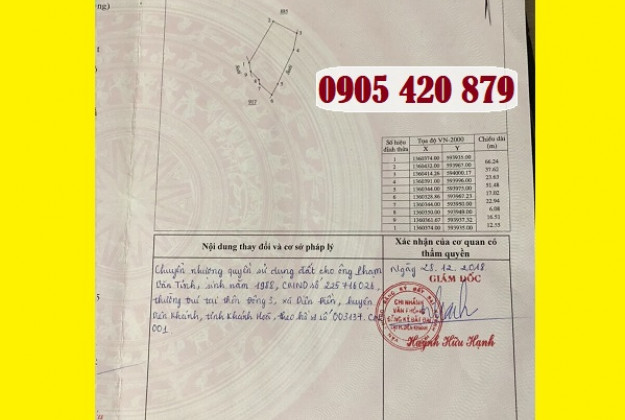 ng)
885
0905 420 879
Số hiệu đỉnh thửa Tọa độ VN-2000 Chiều dài (m)
X Y
1 1360374.00 593935.00
66.24
2 1360432.00 593967.00
37.62
3 1360414.26 594000.17
23.63
4 1360391.00 593996.00
51.48
5 1360344.00 593975.00
17.02
6 1360328.86 593967.23
22.94
7 1360344.00 593950.00
6.08
8 1360350.00 593949.00
16.51
9 1360361.67 593937.32
12.55
1 1360374.00 593935.00
Nội dung thay đổi và cơ sở pháp lý
Xác nhận của cơ quan có
thẩm quyền
Chuyển nhượng quyền sử dụng đất cho ông Phạm
Văn Tính, sinh năm 1988, CMND số 225716026,
thường trú tại thôn Đông 3, xã Diên Điền, huyện
Diên Khánh, tỉnh Khánh Hòa, theo hồ sơ số 003137.
001.
Ngày 28.12.2018
GIÁM ĐỐC
CHI NHÁNH
VĂN PHÒNG
ĐĂNG KÝ ĐẤT ĐAI
Huỳnh Hữu Hạnh